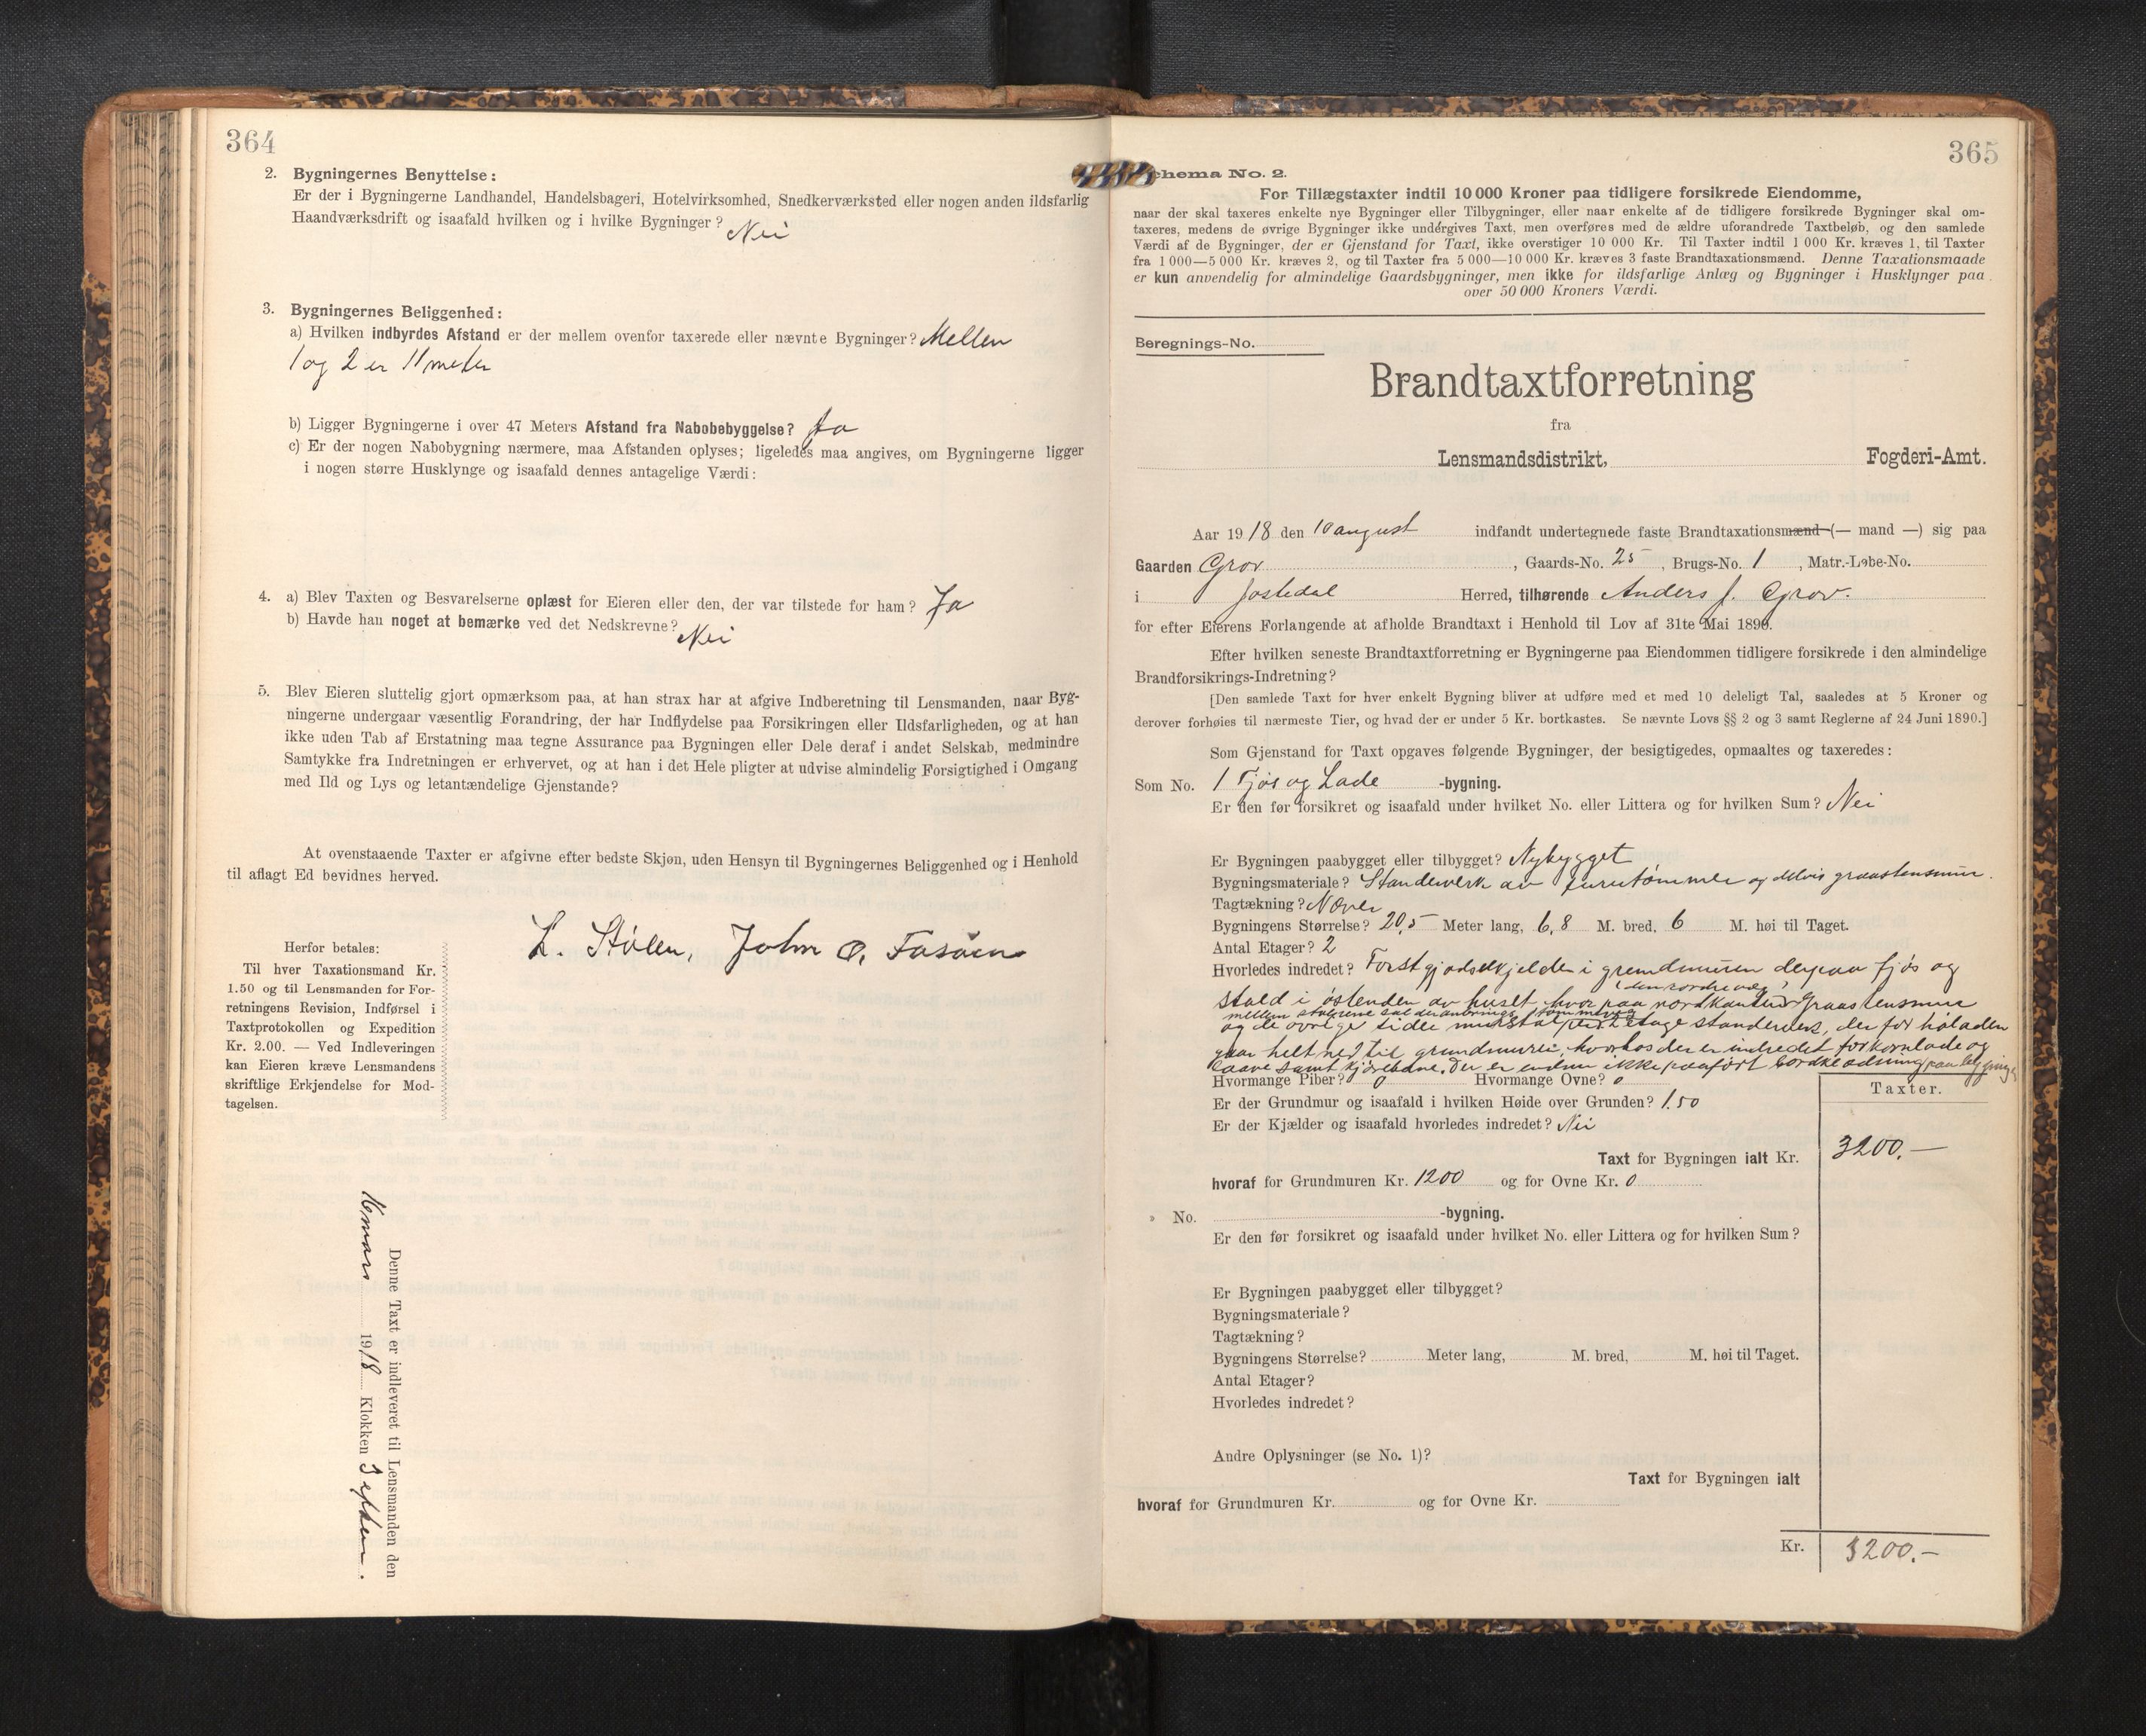 364
2. Bygningernes Benyttelse:
Er der i Bygningerne Landhandel, Handelsbageri, Hotelvirksomhed, Snedkerværksted eller nogen anden ildsfarlig
Haandværksdrift og isaafald hvilken og i hvilke Bygninger? Nei
3. Bygningernes Beliggenhed:
a) Hvilken indbyrdes Afstand er der mellem ovenfor taxerede eller nævnte Bygninger? Mellem
1 og 2 er 11 meter
b) Ligger Bygningerne i over 47 Meters Afstand fra Nabobebyggelse? Ja
c) Er der nogen Nabobygning nærmere, maa Afstanden oplyses; ligeledes maa angives, om Bygningerne ligger
i nogen større Husklynge og isaafald dennes antagelige Værdi:
4. a) Blev Taxten og Besvarelserne oplæst for Eieren eller den, der var tilstede for ham? Ja
b) Havde han noget at bemærke ved det Nedskrevne? Nei
5. Blev Eieren sluttelig gjort opmærksom paa, at han strax har at afgive Indberetning til Lensmanden, naar Byg-
ningerne undergaar væsentlig Forandring, der har Indflydelse paa Forsikringen eller Ildsfarligheden, og at han
ikke uden Tab af Erstatning maa tegne Assurance paa Bygningen eller Dele deraf i andet Selskab, medmindre
Samtykke fra Indretningen er erhvervet, og at han i det Hele pligter at udvise almindelig Forsigtighed i Omgang
med Ild og Lys og letantændelige Gjenstande?
At ovenstaaende Taxter er afgivne efter bedste Skjøn, uden Hensyn til Bygningernes Beliggenhed og i Henhold
til aflagt Ed bevidnes herved.
L. Stölen, John O. Fasöen
Herfor betales:
Til hver Taxationsmand Kr.
1.50 og til Lensmanden for For-
retningens Revision, Indførsel i
Taxtprotokollen og Expedition
Kr. 2.00. — Ved Indleveringen
kan Eieren kræve Lensmandens
skriftlige Erkjendelse for Mod-
tagelsen.
Denne Taxt er indleveret til Lensmanden den
16 mars 1918 Klokken 3 efterm.
365
chema No. 2.
For Tillægstaxter indtil 10 000 Kroner paa tidligere forsikrede Eiendomme,
naar der skal taxeres enkelte nye Bygninger eller Tilbygninger, eller naar enkelte af de tidligere forsikrede Bygninger skal om-
taxeres, medens de øvrige Bygninger ikke undergives Taxt, men overføres med de ældre uforandrede Taxtbeløb, og den samlede
Værdi af de Bygninger, der er Gjenstand for Taxt, ikke overstiger 10 000 Kr. Til Taxter indtil 1 000 Kr. kræves 1, til Taxter
fra 1 000—5 000 Kr. kræves 2, og til Taxter fra 5 000—10 000 Kr. kræves 3 faste Brandtaxationsmænd. Denne Taxationsmaade
er kun anvendelig for almindelige Gaardsbygninger, men ikke for ildsfarlige Anlæg og Bygninger i Husklynger paa
over 50 000 Kroners Værdi.
Beregnings-No.
Brandtaxtforretning
fra
Lensmandsdistrikt, Fogderi-Amt.
Aar 1918 den 10 august indfandt undertegnede faste Brandtaxationsmænd (— mand —) sig paa
Gaarden Grov, Gaards-No. 25, Brugs-No. 1, Matr.-Løbe-No.
i Jostedal Herred, tilhørende Anders J. Grov.
for efter Eierens Forlangende at afholde Brandtaxt i Henhold til Lov af 31te Mai 1890.
Efter hvilken seneste Brandtaxtforretning er Bygningerne paa Eiendommen tidligere forsikrede i den almindelige
Brandforsikrings-Indretning?
[Den samlede Taxt for hver enkelt Bygning bliver at udføre med et med 10 deleligt Tal, saaledes at 5 Kroner og
derover forhøies til nærmeste Tier, og hvad der er under 5 Kr. bortkastes. Se nævnte Lovs §§ 2 og 3 samt Reglerne af 24 Juni 1890.]
Som Gjenstand for Taxt opgaves følgende Bygninger, der besigtigedes, opmaaltes og taxeredes:
Som No. 1 Fjös og Lade -bygning.
Er den før forsikret og isaafald under hvilket No. eller Littera og for hvilken Sum? Nei
Er Bygningen paabygget eller tilbygget? Nybygget
Bygningsmateriale? Standerverk av furutömmer og delvis graastensmur.
Tagtækning? Næver
Bygningens Størrelse? 20,5 Meter lang, 6,8 M. bred, 6 M. høi til Taget.
Antal Etager? 2
Hvorledes indredet? Forst gjödselkjelder i grundmuren derpaa fjös og
stald i östenden av huset hvor paa nordkanten er Graastensmur
mellem
og de övrige sider 2 etage standerverk, der for höladen
gaar helt ned til grundmuren, hvorhos der er indredet forkornlade og
laave samt kjörebane. Der er endnu ikke paafört bordklædning paa bygningen
Hvormange Piber? 0 Hvormange Ovne? 0
Er der Grundmur og isaafald i hvilken Høide over Grunden? 1.50
Er der Kjælder og isaafald hvorledes indredet? Nei
Taxter.
Taxt for Bygningen ialt Kr. 3200.—
hvoraf for Grundmuren Kr. 1200 og for Ovne Kr. 0
» No. -bygning.
Er den før forsikret og isaafald under hvilket No. eller Littera og for hvilken Sum?
Er Bygningen paabygget eller tilbygget?
Bygningsmateriale?
Tagtækning?
Bygningens Størrelse? Meter lang, M. bred, M. høi til Taget.
Antal Etager?
Hvorledes indredet?
Andre Oplysninger (se No. 1)?
Taxt for Bygningen ialt
hvoraf for Grundmuren Kr. og for Ovne Kr.
Kr. 3200.—